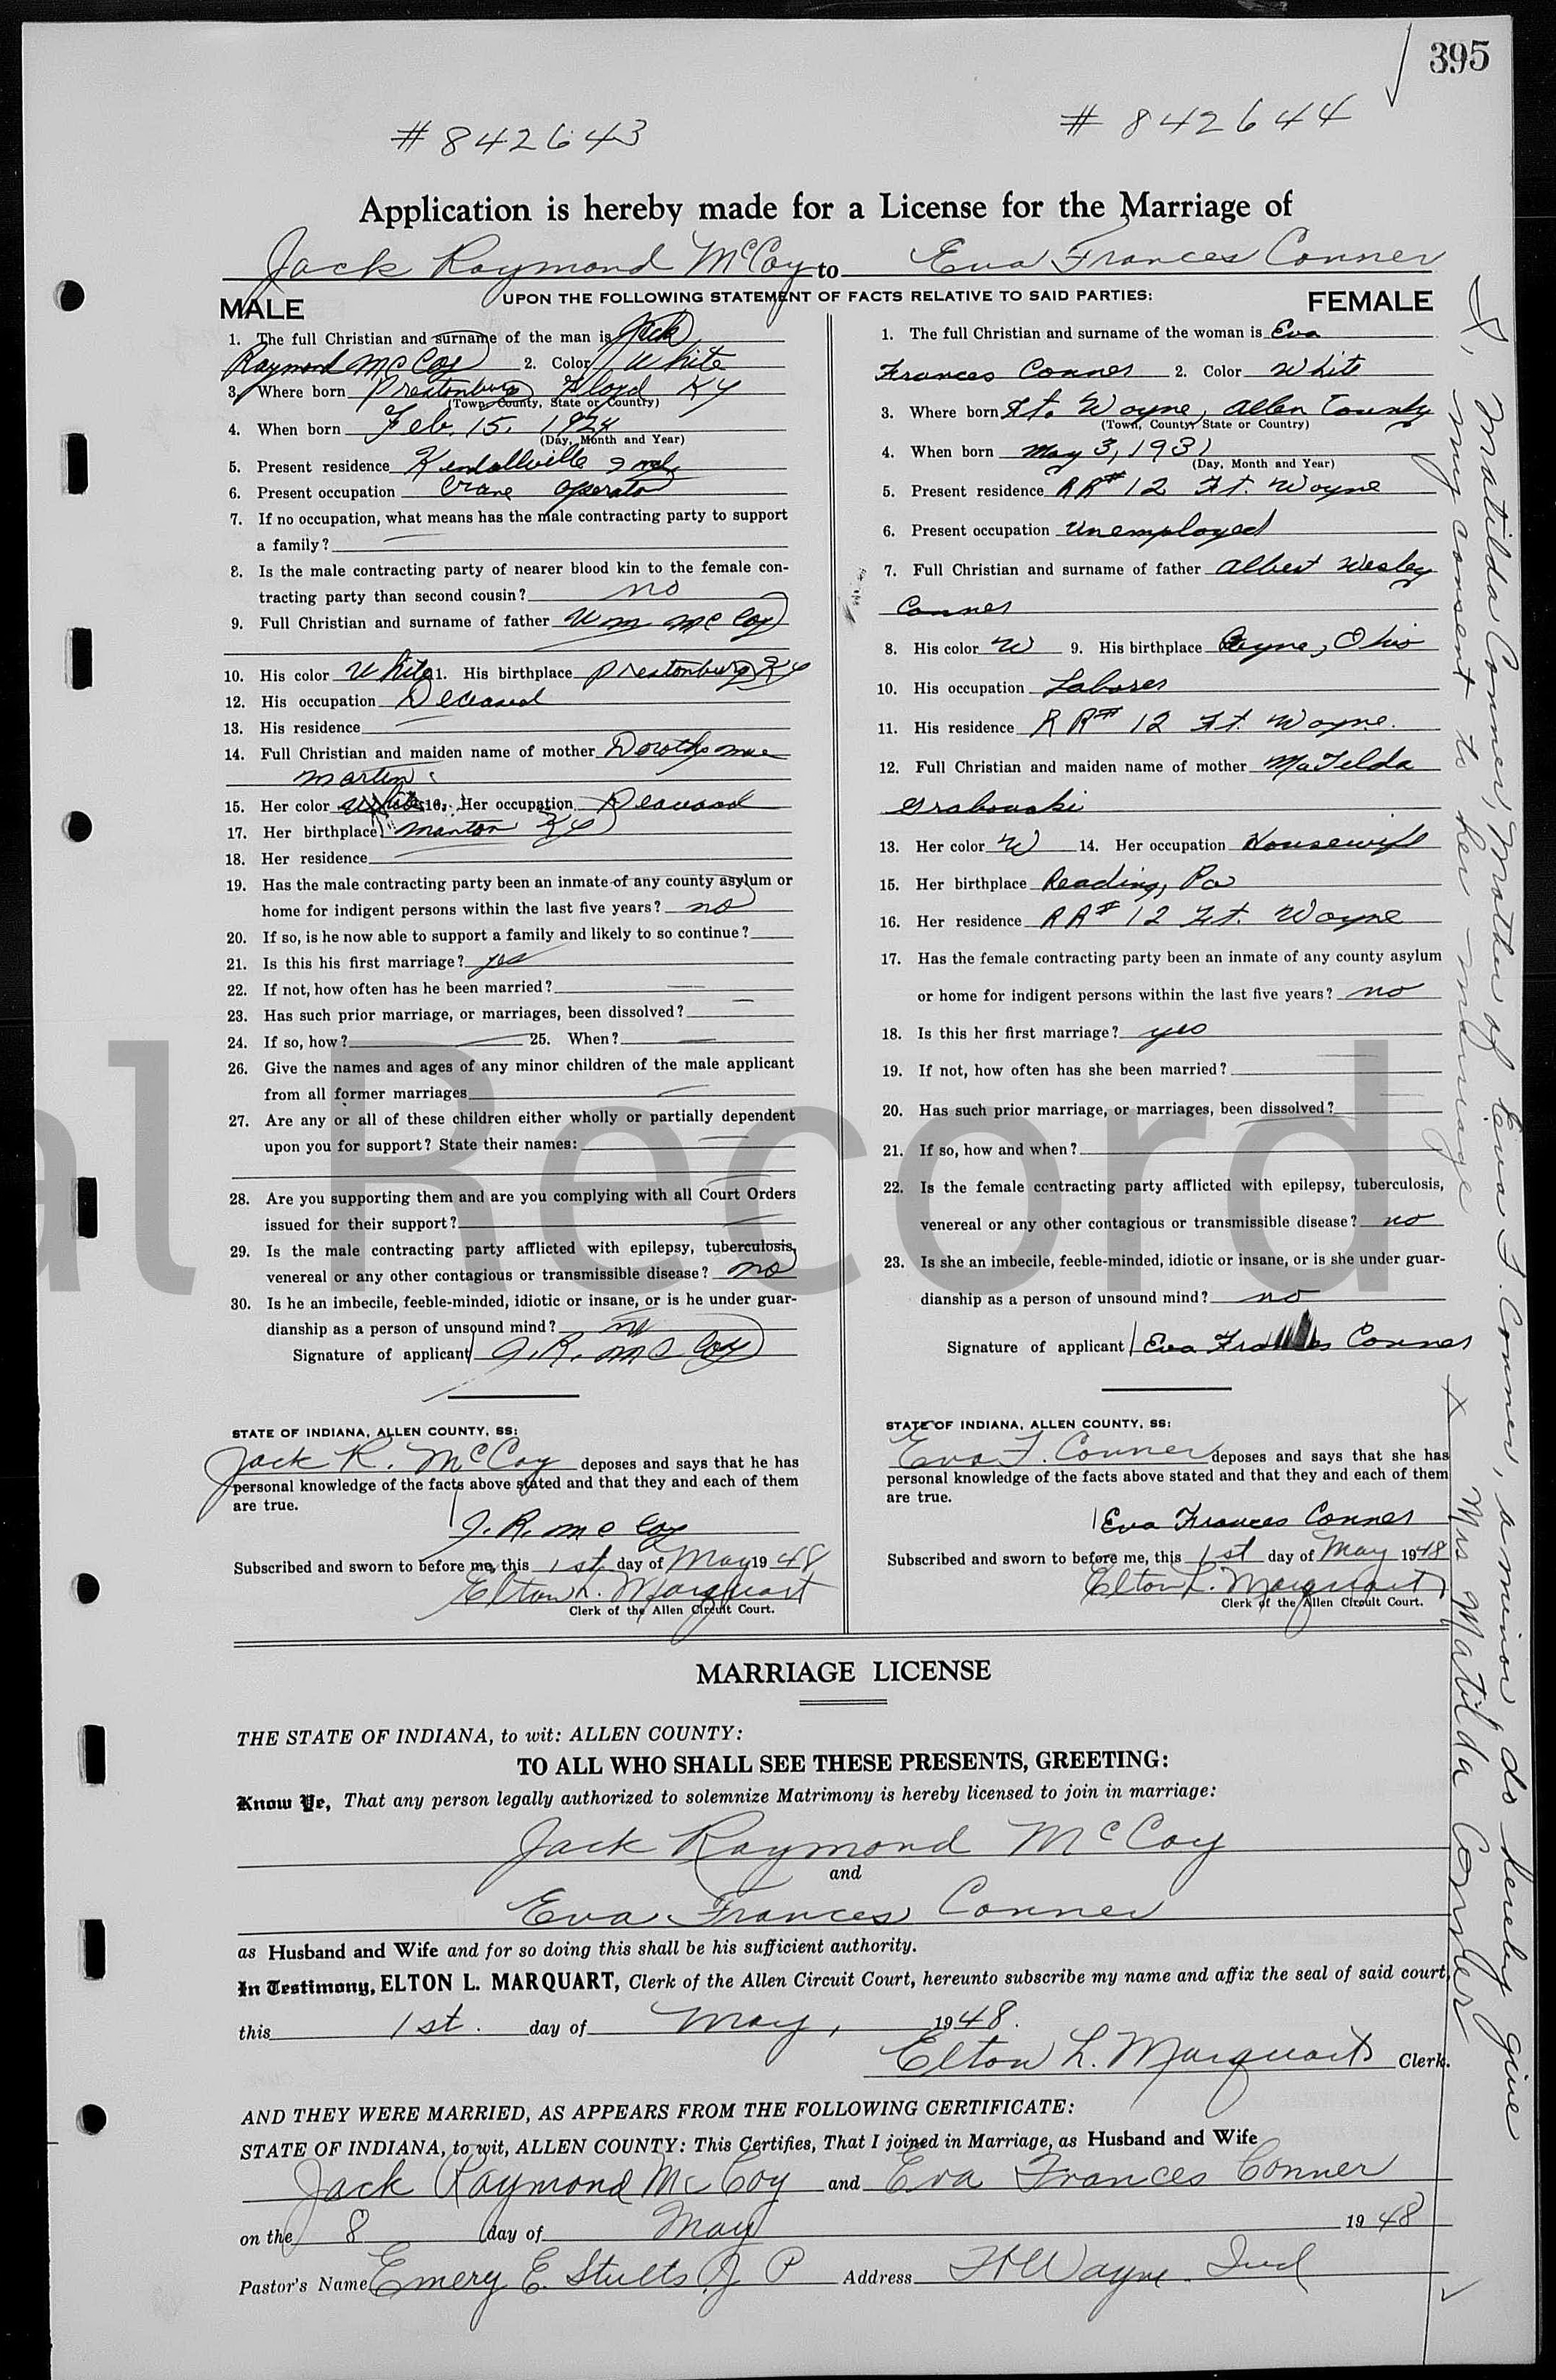 395
# 842643
# 842644
Application is hereby made for a License for the Marriage of
Jack Raymond McCoy to Eva Frances Conner
MALE UPON THE FOLLOWING STATEMENT OF FACTS RELATIVE TO SAID PARTIES: FEMALE
1. The full Christian and surname of the man is Jack
Raymond McCoy 2. Color White
3. Where born Prestonburg Floyd Ky
(Town, County, State or Country)
4. When born Feb. 15, 1924
(Day, Month and Year)
5. Present residence Kendallville Ind.
6. Present occupation Crane operator
7. If no occupation, what means has the male contracting party to support
a family?
8. Is the male contracting party of nearer blood kin to the female con-
tracting party than second cousin? no
9. Full Christian and surname of father Wm McCoy
10. His color White 11. His birthplace Prestonburg Ky
12. His occupation Deceased
13. His residence
14. Full Christian and maiden name of mother Dorothy Mae
Martin
15. Her color White 16. Her occupation Deceased
17. Her birthplace Manton Ky
18. Her residence
19. Has the male contracting party been an inmate of any county asylum or
home for indigent persons within the last five years? no
20. If so, is he now able to support a family and likely to so continue?
21. Is this his first marriage? yes
22. If not, how often has he been married?
23. Has such prior marriage, or marriages, been dissolved?
24. If so, how? 25. When?
26. Give the names and ages of any minor children of the male applicant
from all former marriages
27. Are any or all of these children either wholly or partially dependent
upon you for support? State their names:
28. Are you supporting them and are you complying with all Court Orders
issued for their support?
29. Is the male contracting party afflicted with epilepsy, tuberculosis,
venereal or any other contagious or transmissible disease? no
30. Is he an imbecile, feeble-minded, idiotic or insane, or is he under guar-
dianship as a person of unsound mind? no
Signature of applicant J. R. McCoy
STATE OF INDIANA, ALLEN COUNTY, SS:
Jack R. McCoy deposes and says that he has
personal knowledge of the facts above stated and that they and each of them
are true.
J. R. McCoy
Subscribed and sworn to before me, this 1st day of May 1948
Elton L. Marquart
Clerk of the Allen Circuit Court.
1. The full Christian and surname of the woman is Eva
Frances Conner 2. Color White
3. Where born Ft. Wayne, Allen County
(Town, County, State or Country)
4. When born May 3, 1931
(Day, Month and Year)
5. Present residence RR# 12 Ft. Wayne
6. Present occupation Unemployed
7. Full Christian and surname of father Albert Wesley
Conner
8. His color W 9. His birthplace Payne, Ohio
10. His occupation Laborer
11. His residence RR# 12 Ft. Wayne.
12. Full Christian and maiden name of mother Matelda
Grabowski
13. Her color W 14. Her occupation Housewife
15. Her birthplace Reading, Pa
16. Her residence RR# 12 Ft. Wayne
17. Has the female contracting party been an inmate of any county asylum
or home for indigent persons within the last five years? no
18. Is this her first marriage? yes
19. If not, how often has she been married?
20. Has such prior marriage, or marriages, been dissolved?
21. If so, how and when?
22. Is the female contracting party afflicted with epilepsy, tuberculosis,
venereal or any other contagious or transmissible disease? no
23. Is she an imbecile, feeble-minded, idiotic or insane, or is she under guar-
dianship as a person of unsound mind? no
Signature of applicant Eva Frances Conner
STATE OF INDIANA, ALLEN COUNTY, SS:
Eva F. Conner deposes and says that she has
personal knowledge of the facts above stated and that they and each of them
are true.
Eva Frances Conner
Subscribed and sworn to before me, this 1st day of May 1948
Elton L. Marquart
Clerk of the Allen Circuit Court.
I, Matilda Conner, Mother of Eva F. Conner, a minor do hereby give
my consent to her marriage
X Mrs Matilda Conner
al Record
MARRIAGE LICENSE
THE STATE OF INDIANA, to wit: ALLEN COUNTY:
TO ALL WHO SHALL SEE THESE PRESENTS, GREETING:
Know Ye, That any person legally authorized to solemnize Matrimony is hereby licensed to join in marriage:
Jack Raymond McCoy
and
Eva Frances Conner
as Husband and Wife and for so doing this shall be his sufficient authority.
In Testimony, ELTON L. MARQUART, Clerk of the Allen Circuit Court, hereunto subscribe my name and affix the seal of said court,
this 1st. day of May, 1948.
Elton L. Marquart Clerk.
AND THEY WERE MARRIED, AS APPEARS FROM THE FOLLOWING CERTIFICATE:
STATE OF INDIANA, to wit, ALLEN COUNTY: This Certifies, That I joined in Marriage, as Husband and Wife
Jack Raymond McCoy and Eva Frances Conner
on the 8 day of May 1948
Pastor's Name Emery E. Stults J P Address Ft Wayne Ind